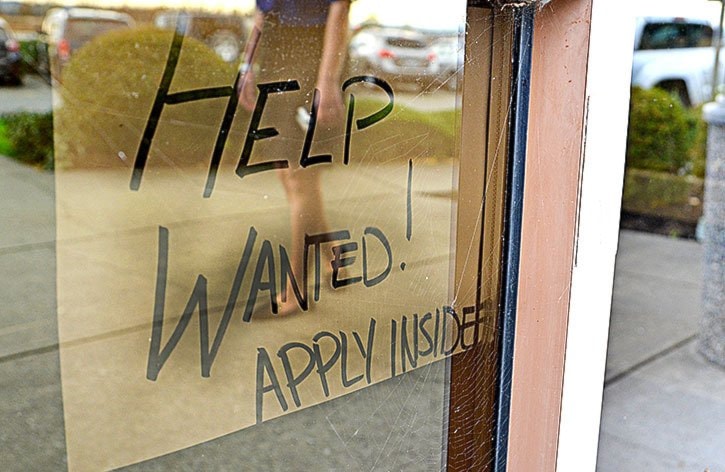 HELP
WANTED!
APPLY INSIDE!